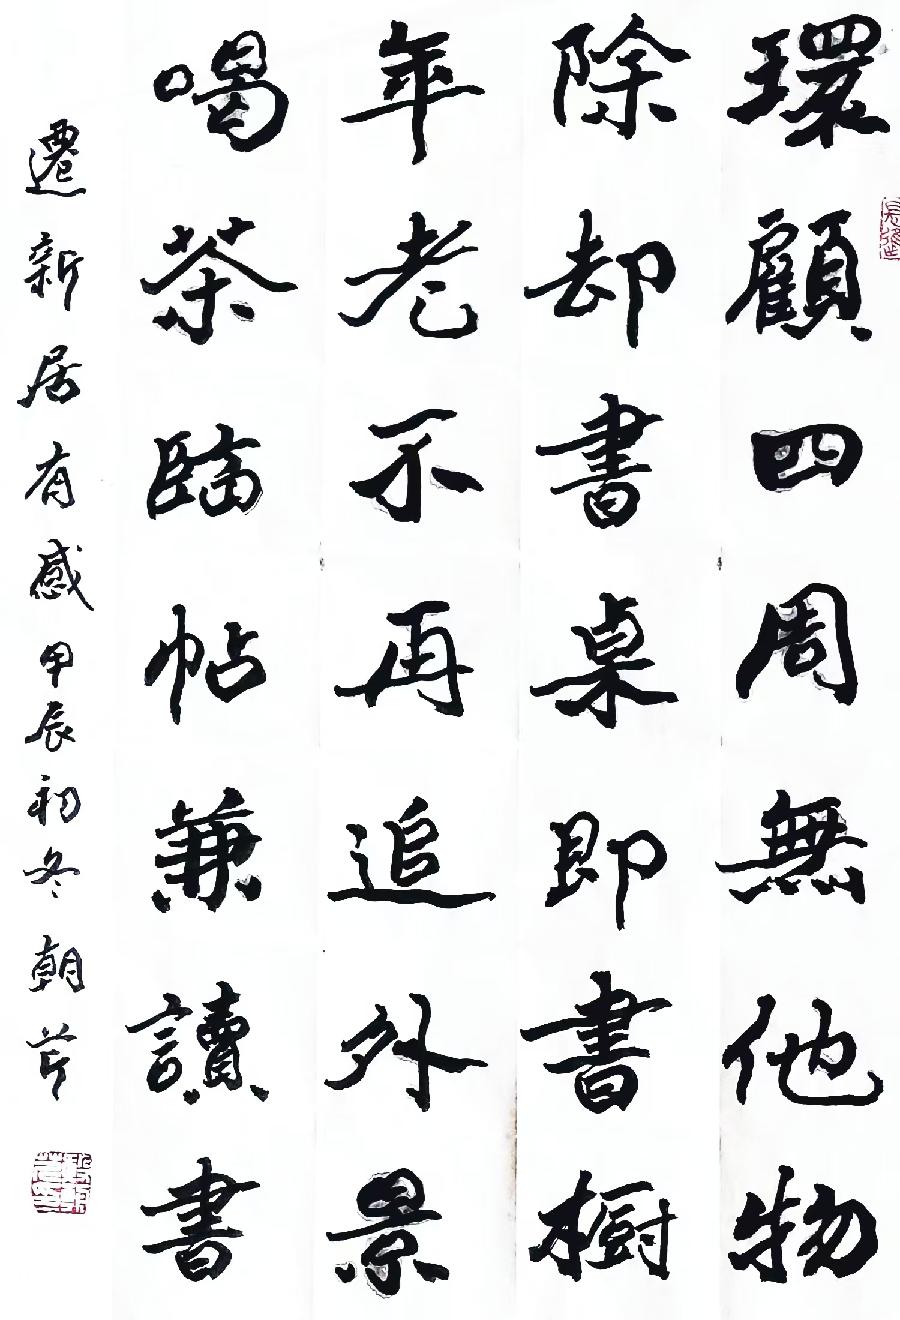 環顧四周無他物
除却書桌即書櫥
年老不再追外景
喝茶臨帖兼讀書
遷新居有感甲辰初冬朝芹